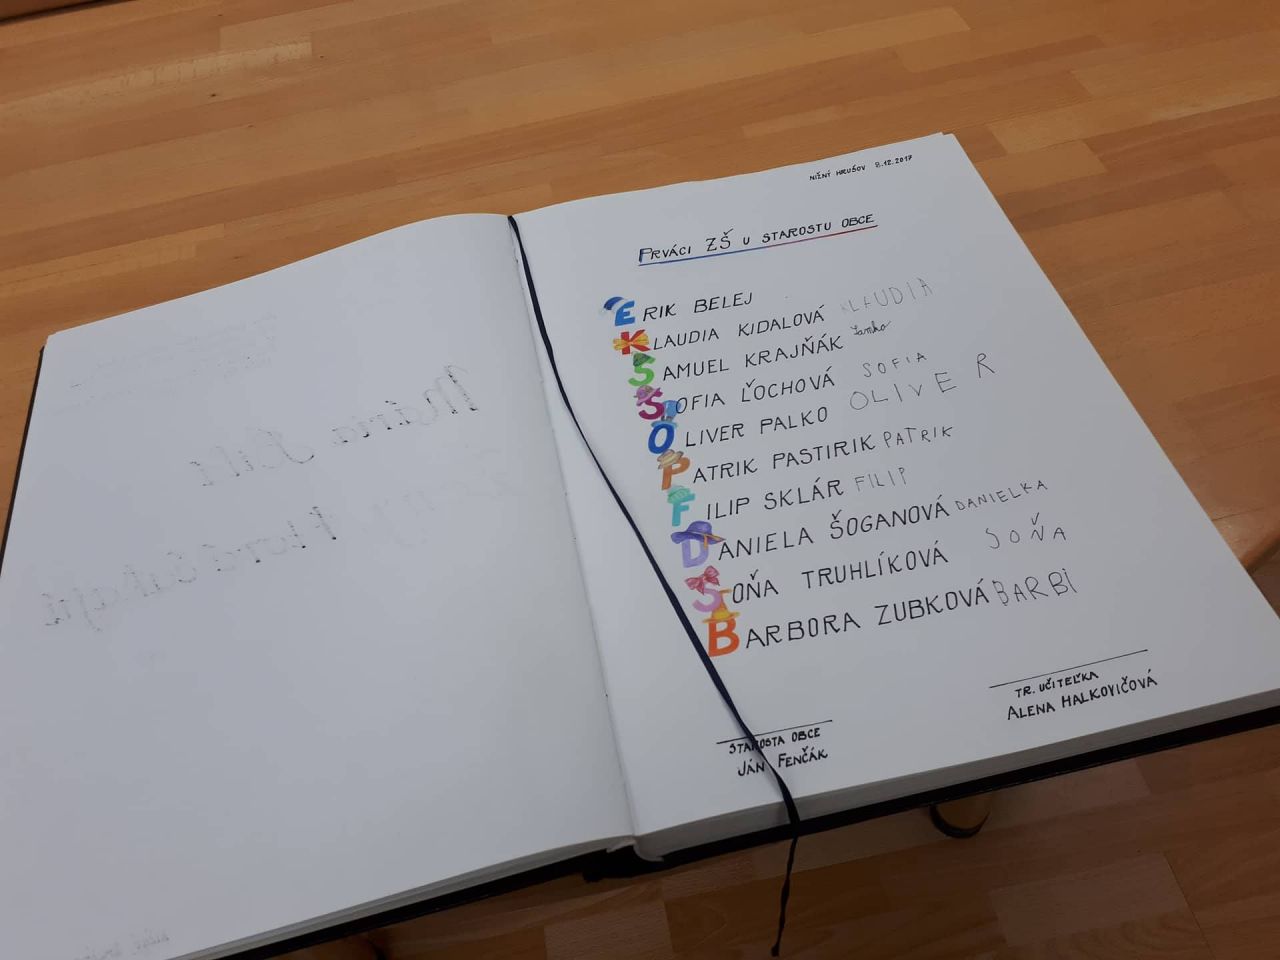 NIŽNÝ HRUŠOV 8.12.2017
PRVÁCI ZŠ U STAROSTU OBCE
ERIK BELEJ
KLAUDIA KIDALOVÁ KLAUDIA
SAMUEL KRAJŇÁK Samko
SOFIA ĽOCHOVÁ SOFIA
OLIVER PALKO OLIVER
PATRIK PASTIRIK PATRIK
FILIP SKLÁR FILIP
DANIELA ŠOGANOVÁ DANIELKA
SOŇA TRUHLÍKOVÁ SOŇA
BARBORA ZUBKOVÁ BARBI
TR. UČITEĽKA
ALENA HALKOVIČOVÁ
STAROSTA OBCE
JÁN FENČÁK